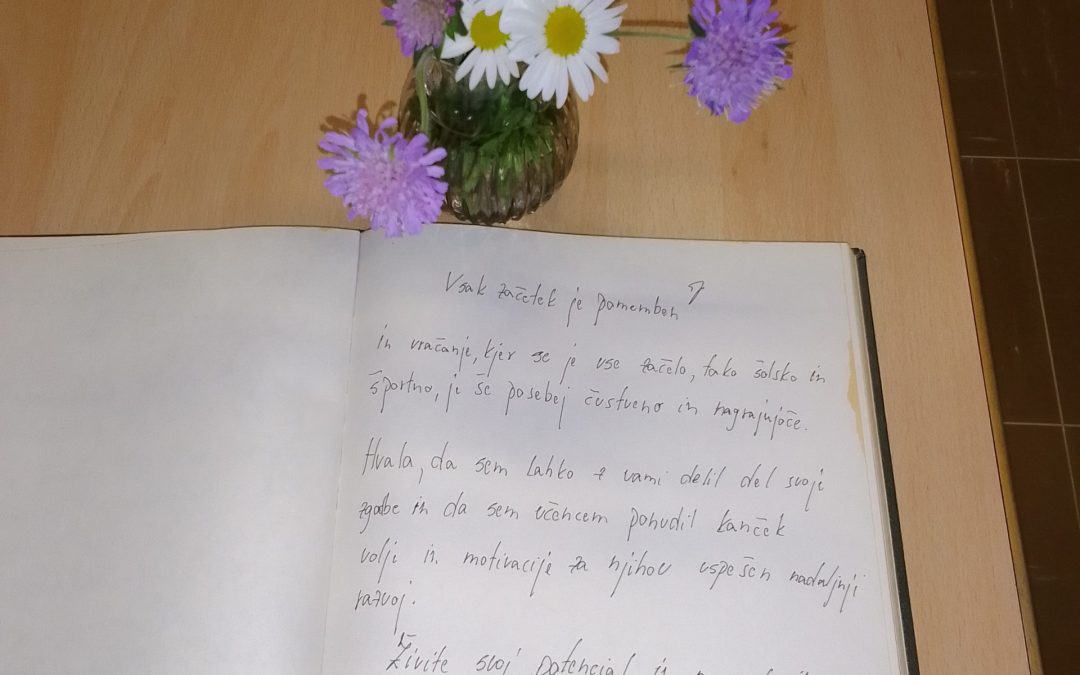 Vsak začetek je pomemben
in vračanje, kjer se je vse začelo, tako šolsko in
športno, ji še posebej čustveno in nagrajujoče.
Hvala, da sem lahko z vami delil del svoji
zgodbe in da sem učencem ponudil kanček
volji in motivacije za njihov uspešen nadaljnji
razvoj.
Živite svoj potencial in